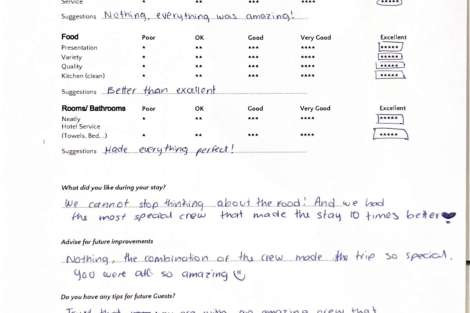 Service * ** *** **** *****
Suggestions Nothing, everything was amazing!
Food Poor OK Good Very Good Excellent
Presentation * ** *** **** *****
Variety * ** *** **** *****
Quality * ** *** **** *****
Kitchen (clean) * ** *** **** *****
Suggestions Better than excellent
Rooms/ Bathrooms Poor OK Good Very Good Excellent
Neatly * ** *** **** *****
Hotel Service
(Towels, Bed...) * ** *** **** *****
Suggestions Made everything perfect!
What did you like during your stay?
We cannot stop thinking about the food! And we had
the most special crew that made the stay 10 times better
Advise for future improvements
Nothing, the combination of the crew made the trip so special.
You were all so amazing
Do you have any tips for future Guests?
Trust that you are with an amazing crew that